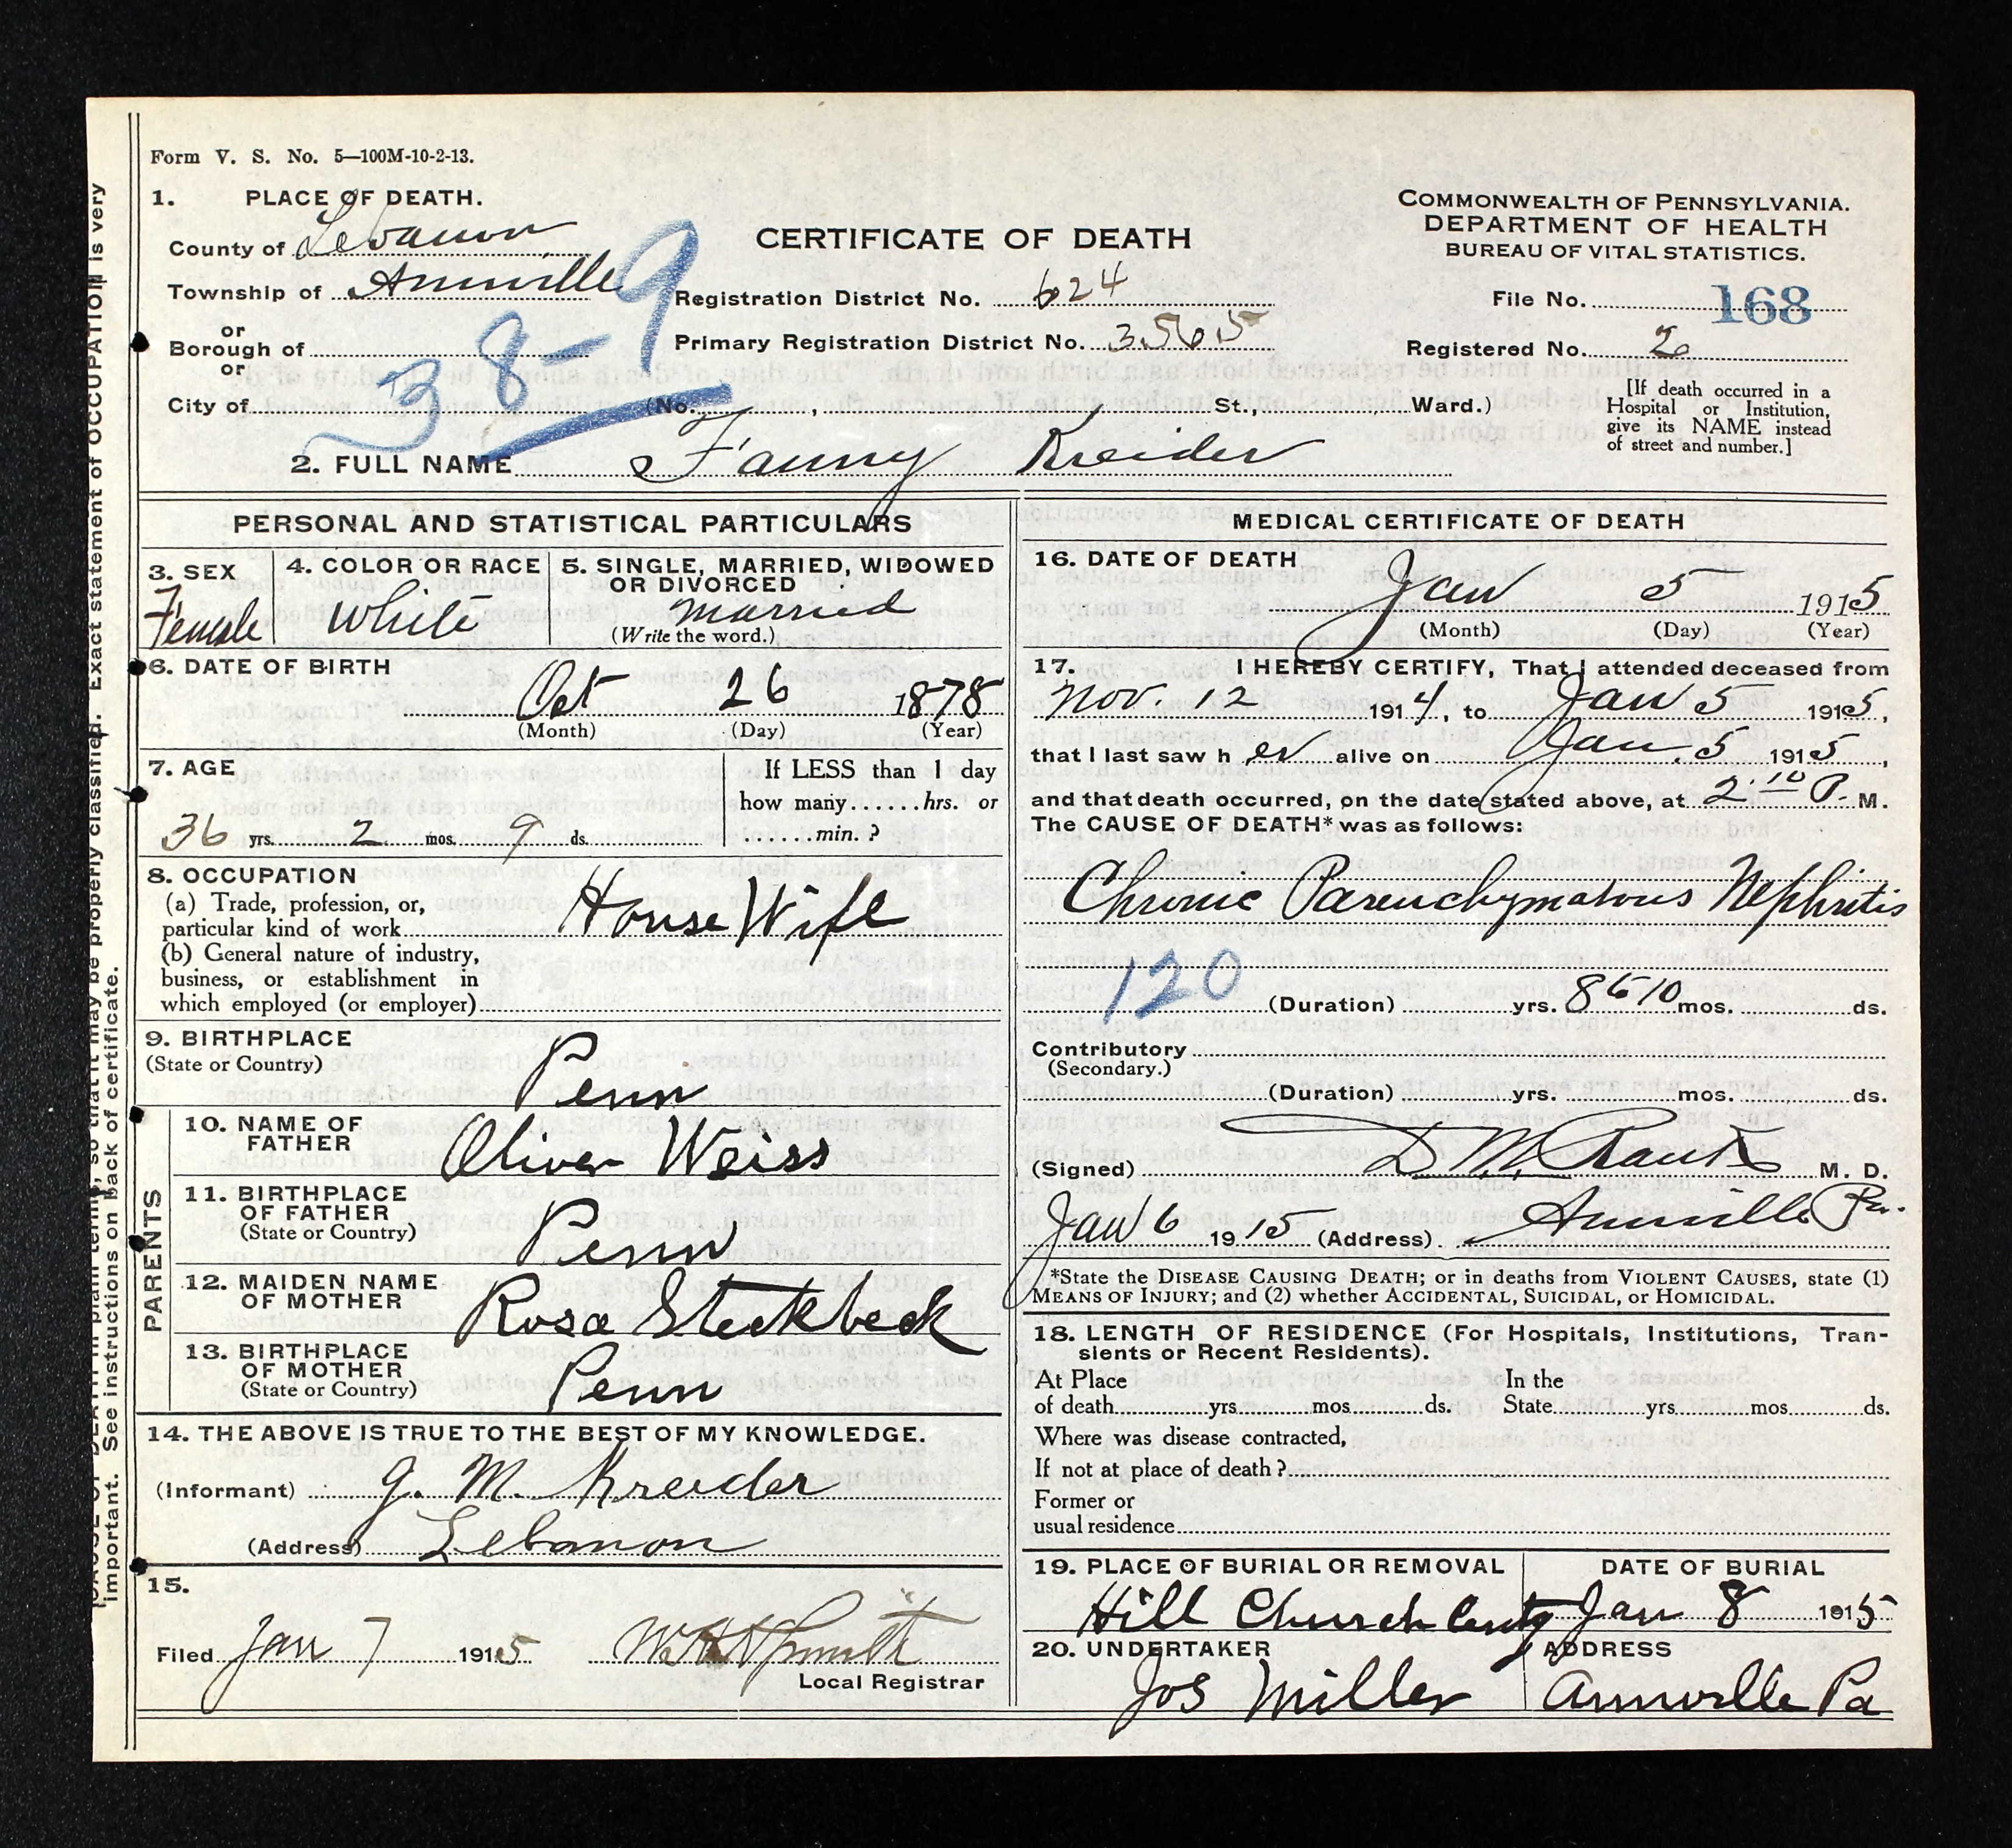 Form V. S. No. 5—100M-10-2-13.
1. PLACE OF DEATH.
County of Lebanon
Township of Annville
or
Borough of
or
City of
38-9
CERTIFICATE OF DEATH
Registration District No. 624
Primary Registration District No. 3565
(No. , St., Ward.)
COMMONWEALTH OF PENNSYLVANIA.
DEPARTMENT OF HEALTH
BUREAU OF VITAL STATISTICS.
File No. 168
Registered No. 2
[If death occurred in a
Hospital or Institution,
give its NAME instead
of street and number.]
2. FULL NAME Fanny Kreider
PERSONAL AND STATISTICAL PARTICULARS
3. SEX
Female
4. COLOR OR RACE
White
5. SINGLE, MARRIED, WIDOWED
OR DIVORCED
Married
(Write the word.)
6. DATE OF BIRTH
Oct 26 1878
(Month) (Day) (Year)
7. AGE
36 yrs. 2 mos. 9 ds.
If LESS than 1 day
how many......hrs. or
......min. ?
8. OCCUPATION
(a) Trade, profession, or,
particular kind of work House Wife
(b) General nature of industry,
business, or establishment in
which employed (or employer)
9. BIRTHPLACE
(State or Country)
Penn
PARENTS
10. NAME OF
FATHER
Oliver Weiss
11. BIRTHPLACE
OF FATHER
(State or Country)
Penn
12. MAIDEN NAME
OF MOTHER
Rosa Steckbeck
13. BIRTHPLACE
OF MOTHER
(State or Country)
Penn
14. THE ABOVE IS TRUE TO THE BEST OF MY KNOWLEDGE.
(Informant) G. M. Kreider
(Address) Lebanon
15.
Filed Jan 7 1915
Local Registrar
MEDICAL CERTIFICATE OF DEATH
16. DATE OF DEATH
Jan 5 1915
(Month) (Day) (Year)
17. I HEREBY CERTIFY, That I attended deceased from
Nov. 12 1914, to Jan 5 1915,
that I last saw her alive on Jan. 5 1915,
and that death occurred, on the date stated above, at 2:10 P. M.
The CAUSE OF DEATH* was as follows:
Chronic Parenchymatous Nephritis
120 (Duration) yrs. mos. ds.
Contributory
(Secondary.)
(Duration) yrs. mos. ds.
(Signed) D M. Rank M. D.
Jan 6 1915 (Address) Annville Pa.
*State the DISEASE CAUSING DEATH; or in deaths from VIOLENT CAUSES, state (1)
MEANS OF INJURY; and (2) whether ACCIDENTAL, SUICIDAL, or HOMICIDAL.
18. LENGTH OF RESIDENCE (For Hospitals, Institutions, Tran-
sients or Recent Residents).
At Place In the
of death yrs. mos. ds. State yrs. mos. ds.
Where was disease contracted,
If not at place of death ?
Former or
usual residence
19. PLACE OF BURIAL OR REMOVAL
Hill Church
DATE OF BURIAL
Jan 8 1915
20. UNDERTAKER
Jos Miller
ADDRESS
Annville Pa
important. See instructions on back of certificate.
so that it may be properly classified. Exact statement of OCCUPATION is very